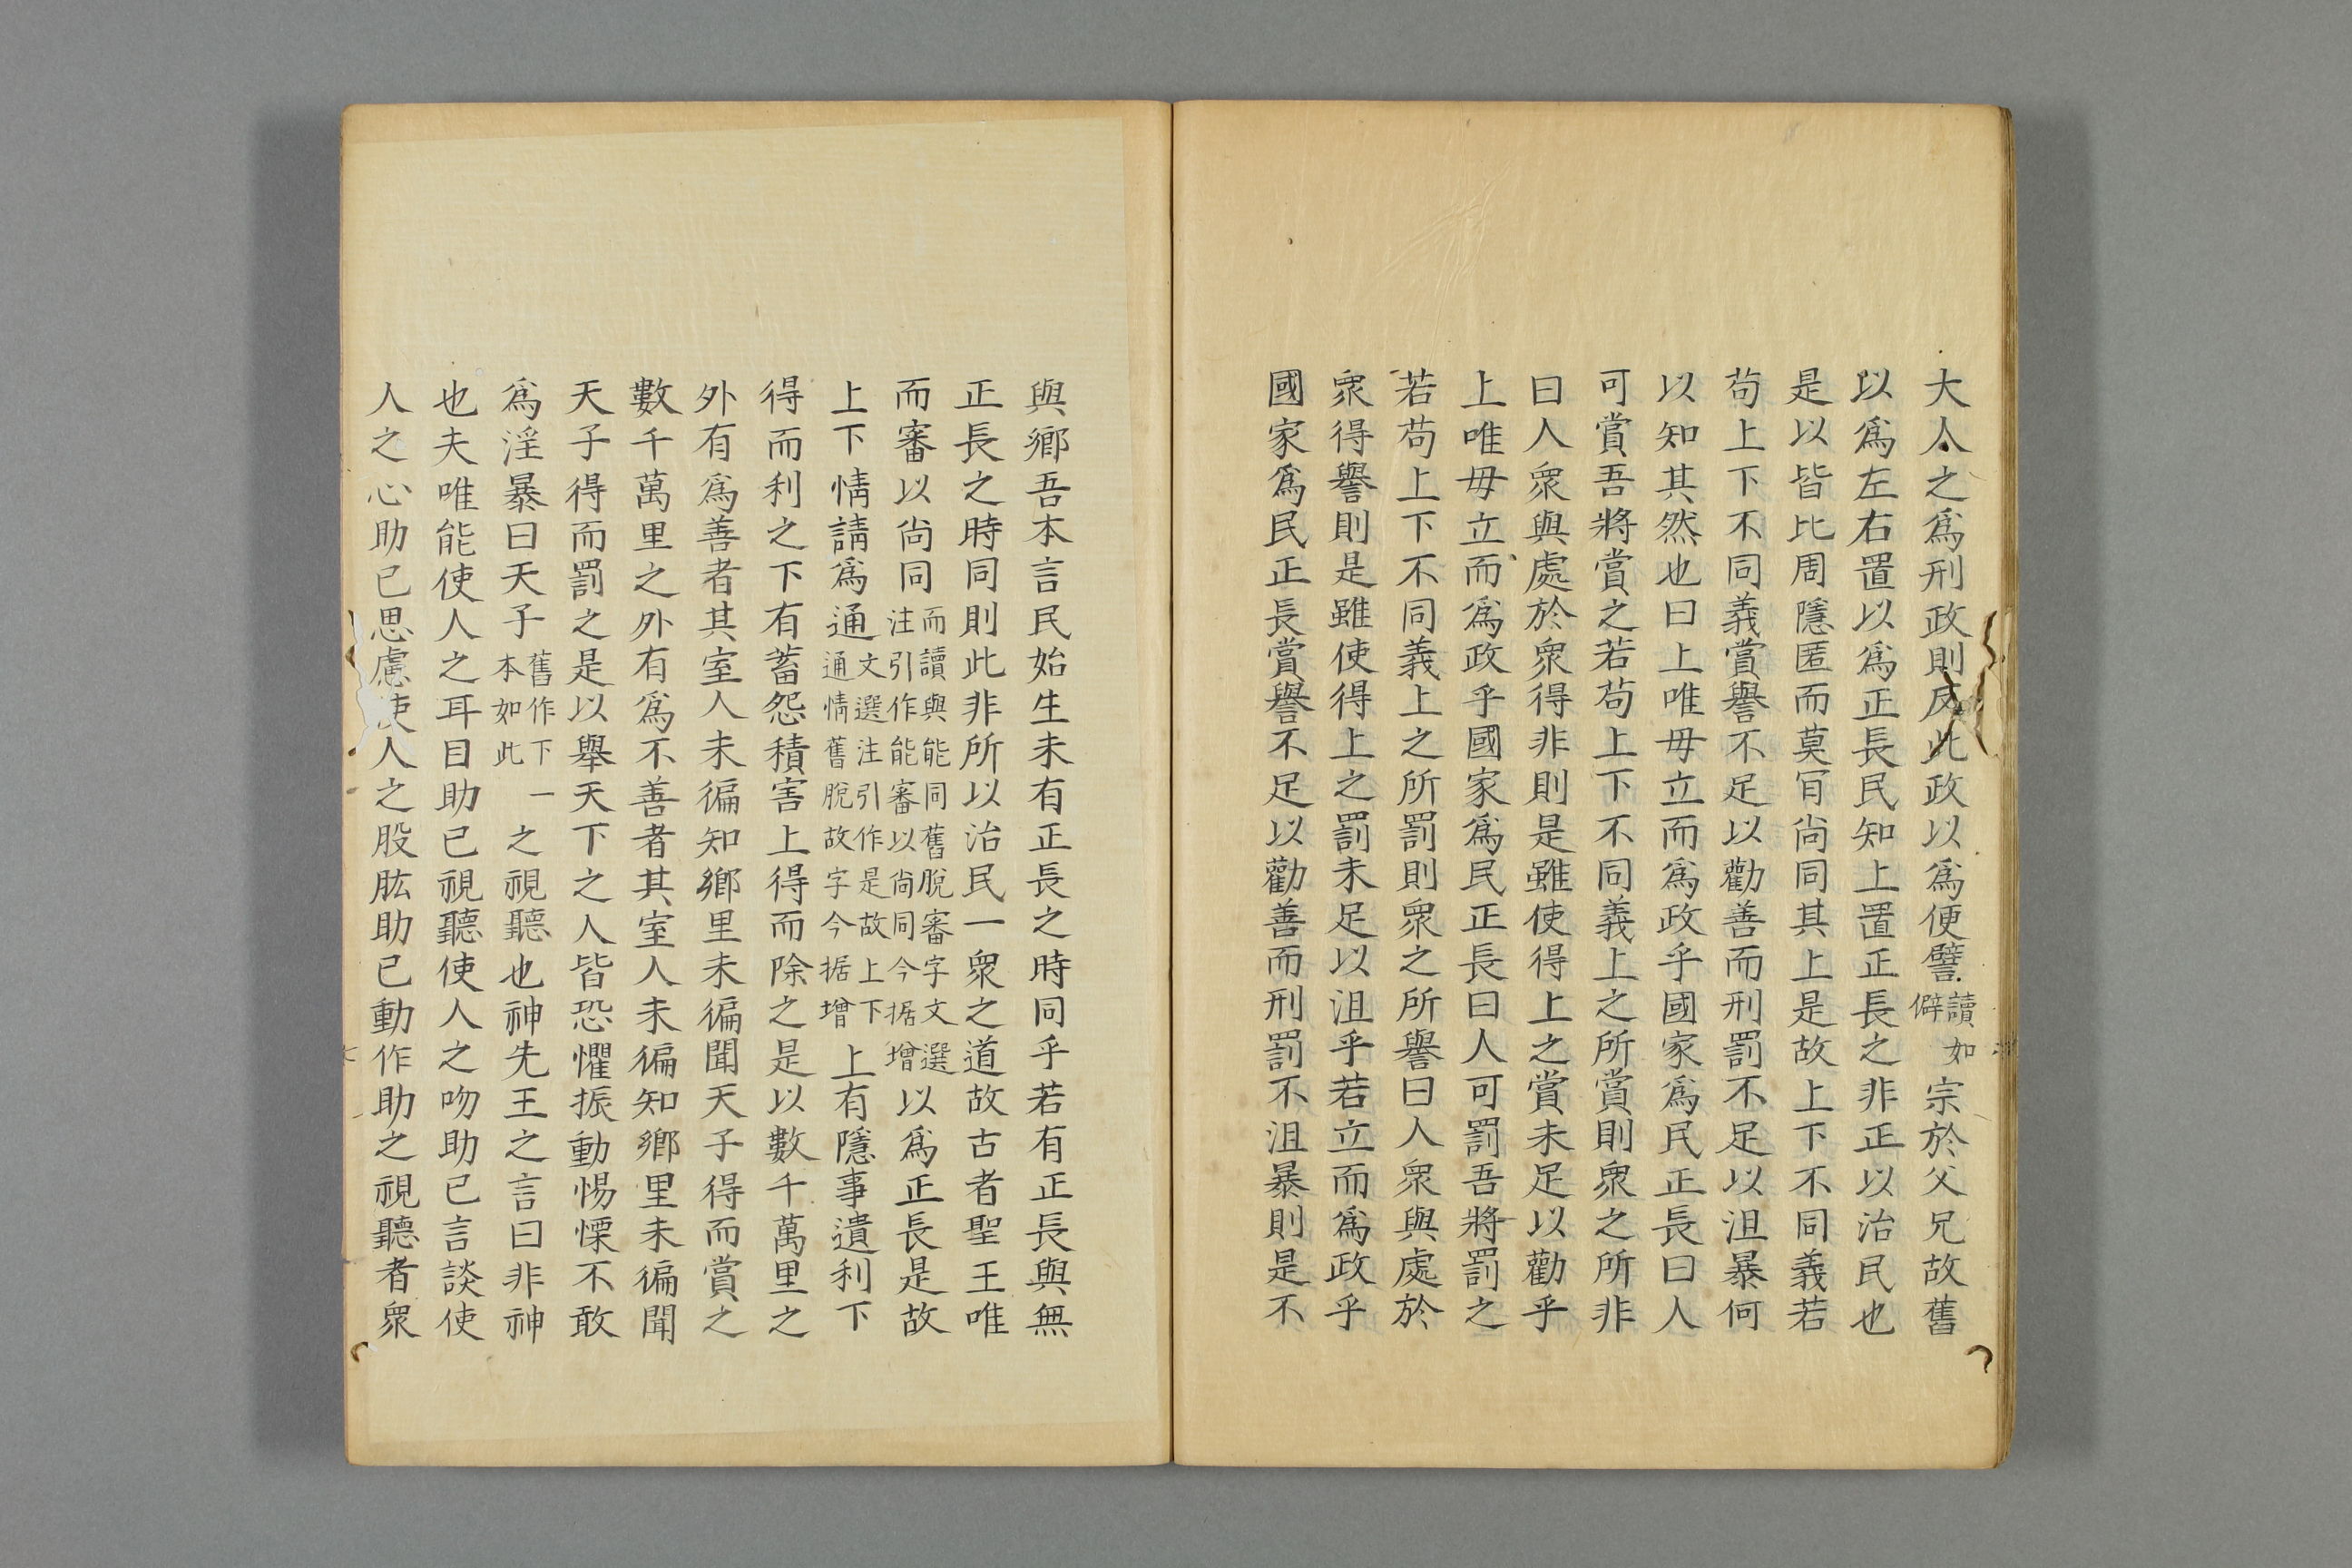 大人之爲刑政則反此政以爲便譬讀如僻宗於父兄故舊
以爲左右置以爲正長民知上置正長之非正以治民也
是以皆比周隱匿而莫肎尚同其上是故上下不同義若
苟上下不同義賞譽不足以勸善而刑罰不足以沮暴何
以知其然也曰上唯毋立而爲政乎國家爲民正長曰人
可賞吾將賞之若苟上下不同義上之所賞則衆之所非
曰人衆與處於衆得非則是雖使得上之賞未足以勸乎
上唯毋立而爲政乎國家爲民正長曰人可罰吾將罰之
若苟上下不同義上之所罰則衆之所譽曰人衆與處於
衆得譽則是雖使得上之罰未足以沮乎若立而爲政乎
國家爲民正長賞譽不足以勸善而刑罰不沮暴則是不
與鄉吾本言民始生未有正長之時同乎若有正長與無
正長之時同則此非所以治民一衆之道故古者聖王唯
而審以尚同而讀與能同舊脫審字文選注引作能審以尚同今据增以爲正長是故
上下情請爲通文選注引作是故上下通情舊脫故字今据增上有隱事遺利下
得而利之下有蓄怨積害上得而除之是以數千萬里之
外有爲善者其室人未徧知鄉里未徧聞天子得而賞之
數千萬里之外有爲不善者其室人未徧知鄉里未徧聞
天子得而罰之是以舉天下之人皆恐懼振動惕慄不敢
爲淫暴曰天子舊作下一本如此之視聽也神先王之言曰非神
也夫唯能使人之耳目助已視聽使人之吻助已言談使
人之心助已思慮使人之股肱助已動作助之視聽者衆